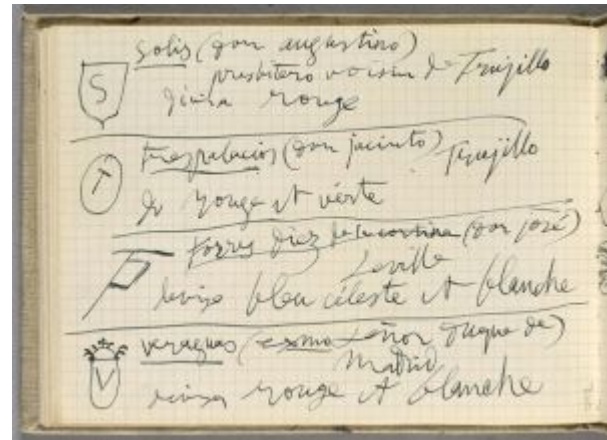 S
solis (don augustino)
presbitero voisin de Trujillo
divisa rouge
T
trespalacios (don jacinto) Trujillo
do rouge et verte
torres diez de la cortina (don josé)
Seville
divisa bleu céleste et blanche
V
veraguas (exmo señor duque de)
Madrid
divisa rouge et blanche